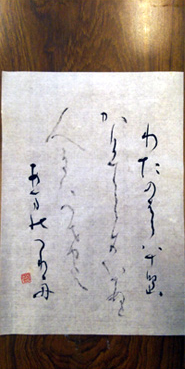 わたのはら八十島
かけてこきいてぬと
人にはつけよ
あまのつり舟